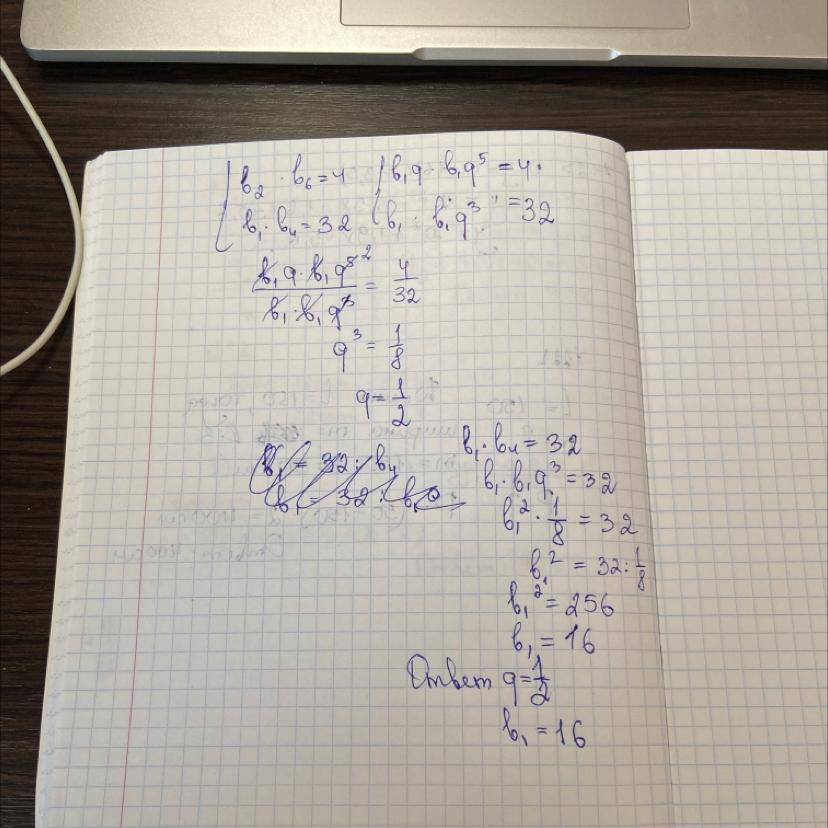 b₂ · b₆ = 4  b₁q · b₁q⁵ = 4
b₁ · b₄ = 32  b₁ · b₁q³ = 32
b₁q · b₁q⁵ / b₁ · b₁q³ = 4/32
q³ = 1/8
q = 1/2
b₁ · b₄ = 32
b₁ · b₁q³ = 32
b₁² · 1/8 = 32
b₁² = 32 : 1/8
b₁² = 256
b₁ = 16
Ответ q = 1/2
b₁ = 16